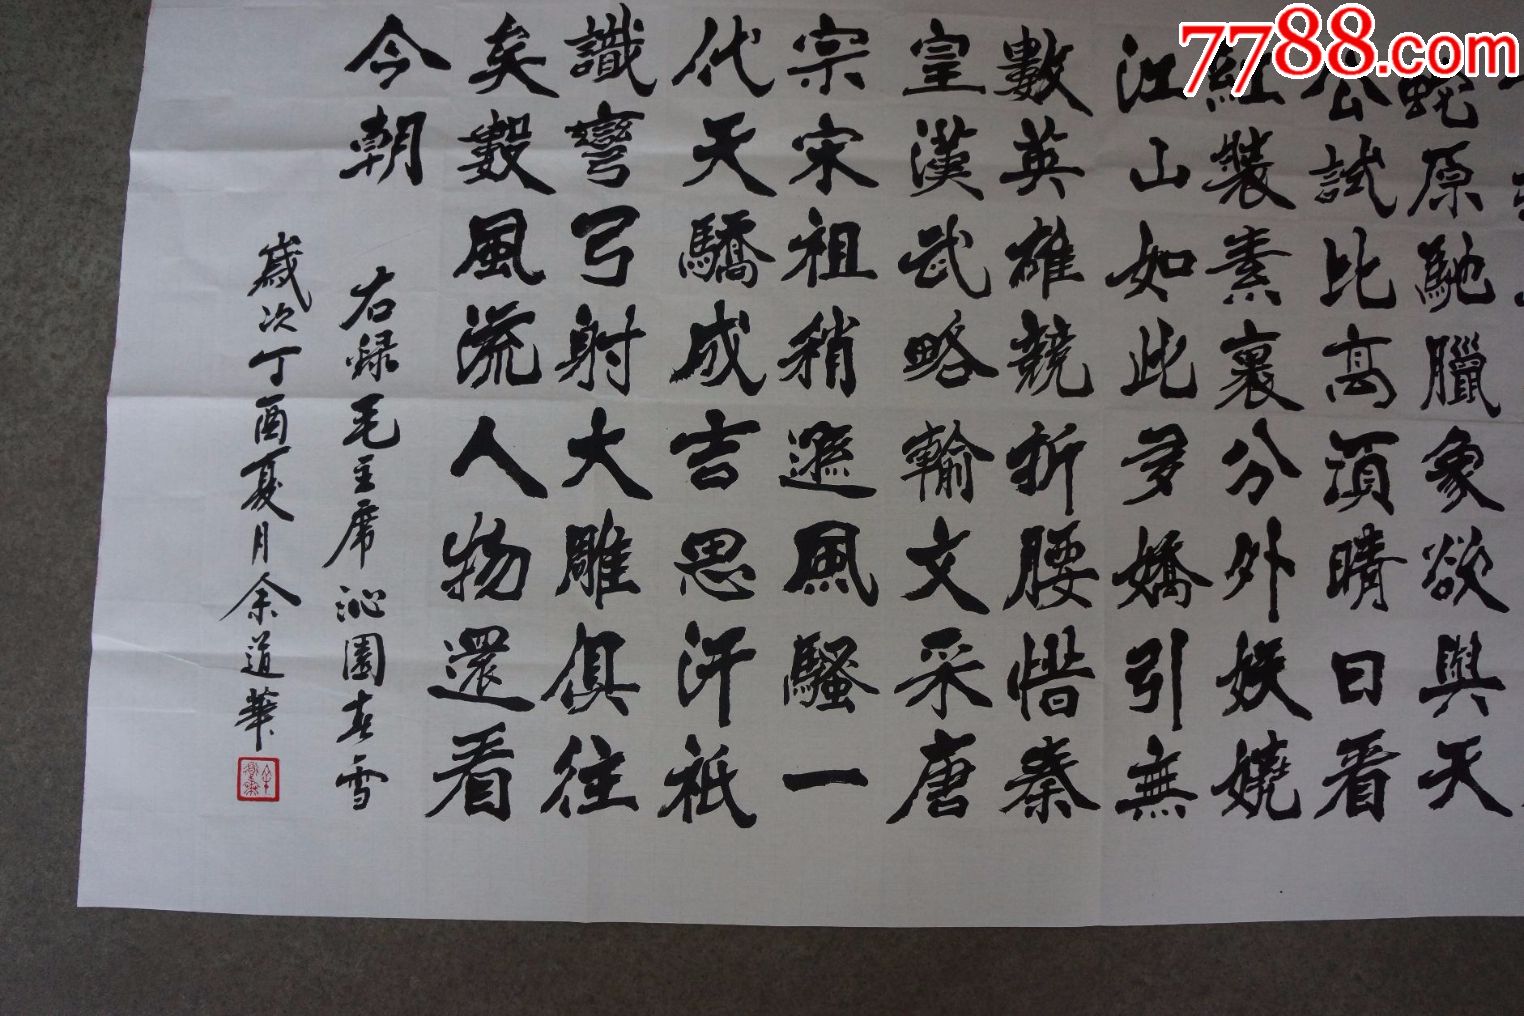 7788.com
蛇原馳臘象欲與天
公試比高須晴日看
紅裝素裹分外妖嬈
江山如此多嬌引無
數英雄競折腰惜秦
皇漢武略輸文采唐
宗宋祖稍遜風騷一
代天驕成吉思汗祇
識彎弓射大雕俱往
矣數風流人物還看
今朝
右録毛主席沁園春雪
歲次丁酉夏月余道華